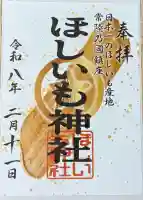 奉拝
日本一のほしいも産地
常陸乃國鎮座
ほしいも神社
令和八年 二月十一日